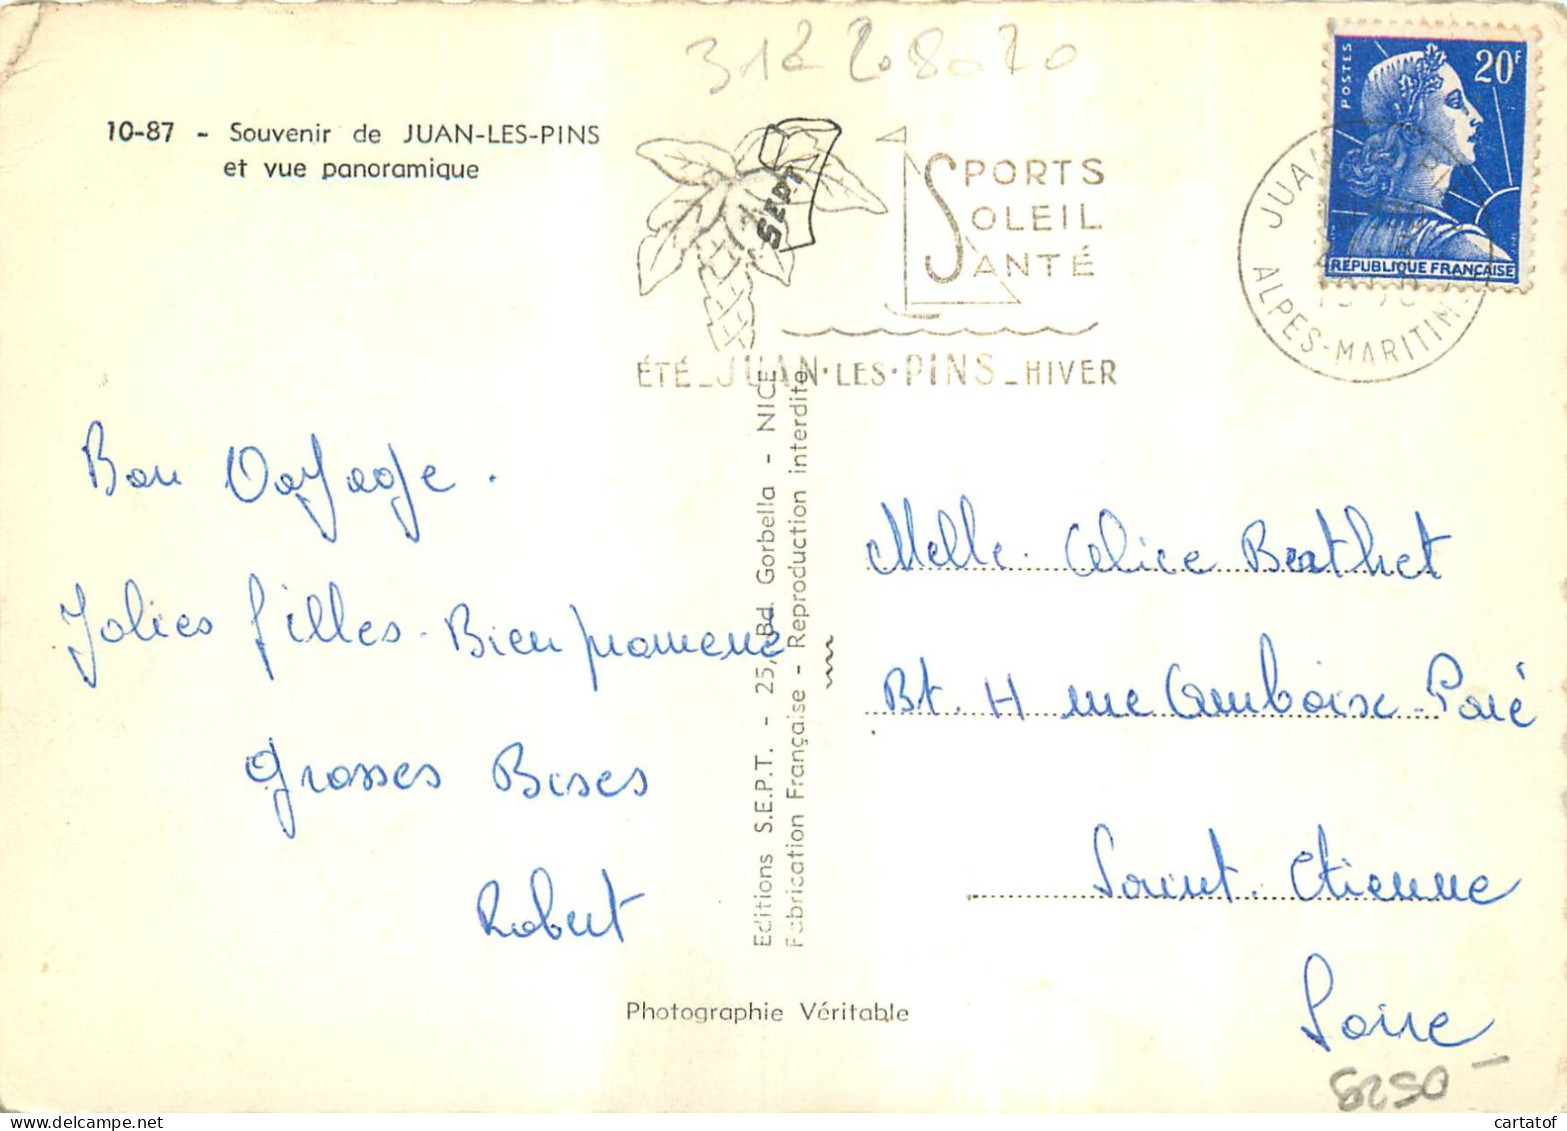 312 2.8020
10-87 - Souvenir de JUAN-LES-PINS
et vue panoramique
SEPT
SPORTS
SOLEIL
SANTÉ
ÉTÉ _ JUAN·LES·PINS _ HIVER
POSTES
20F
REPUBLIQUE FRANÇAISE
JUAN
ALPES-MARITIM
Bon Voyage.
Jolies filles. Bien promené
Grosses Bises
Robert
Editions S.E.P.T. - 25, Bd. Gorbella - NICE
Fabrication Française - Reproduction interdite
Melle. Alice Berthet
Bt. H rue Ambroise Paré
Saint. Etienne
Loire
Photographie Véritable
8250
cartatof